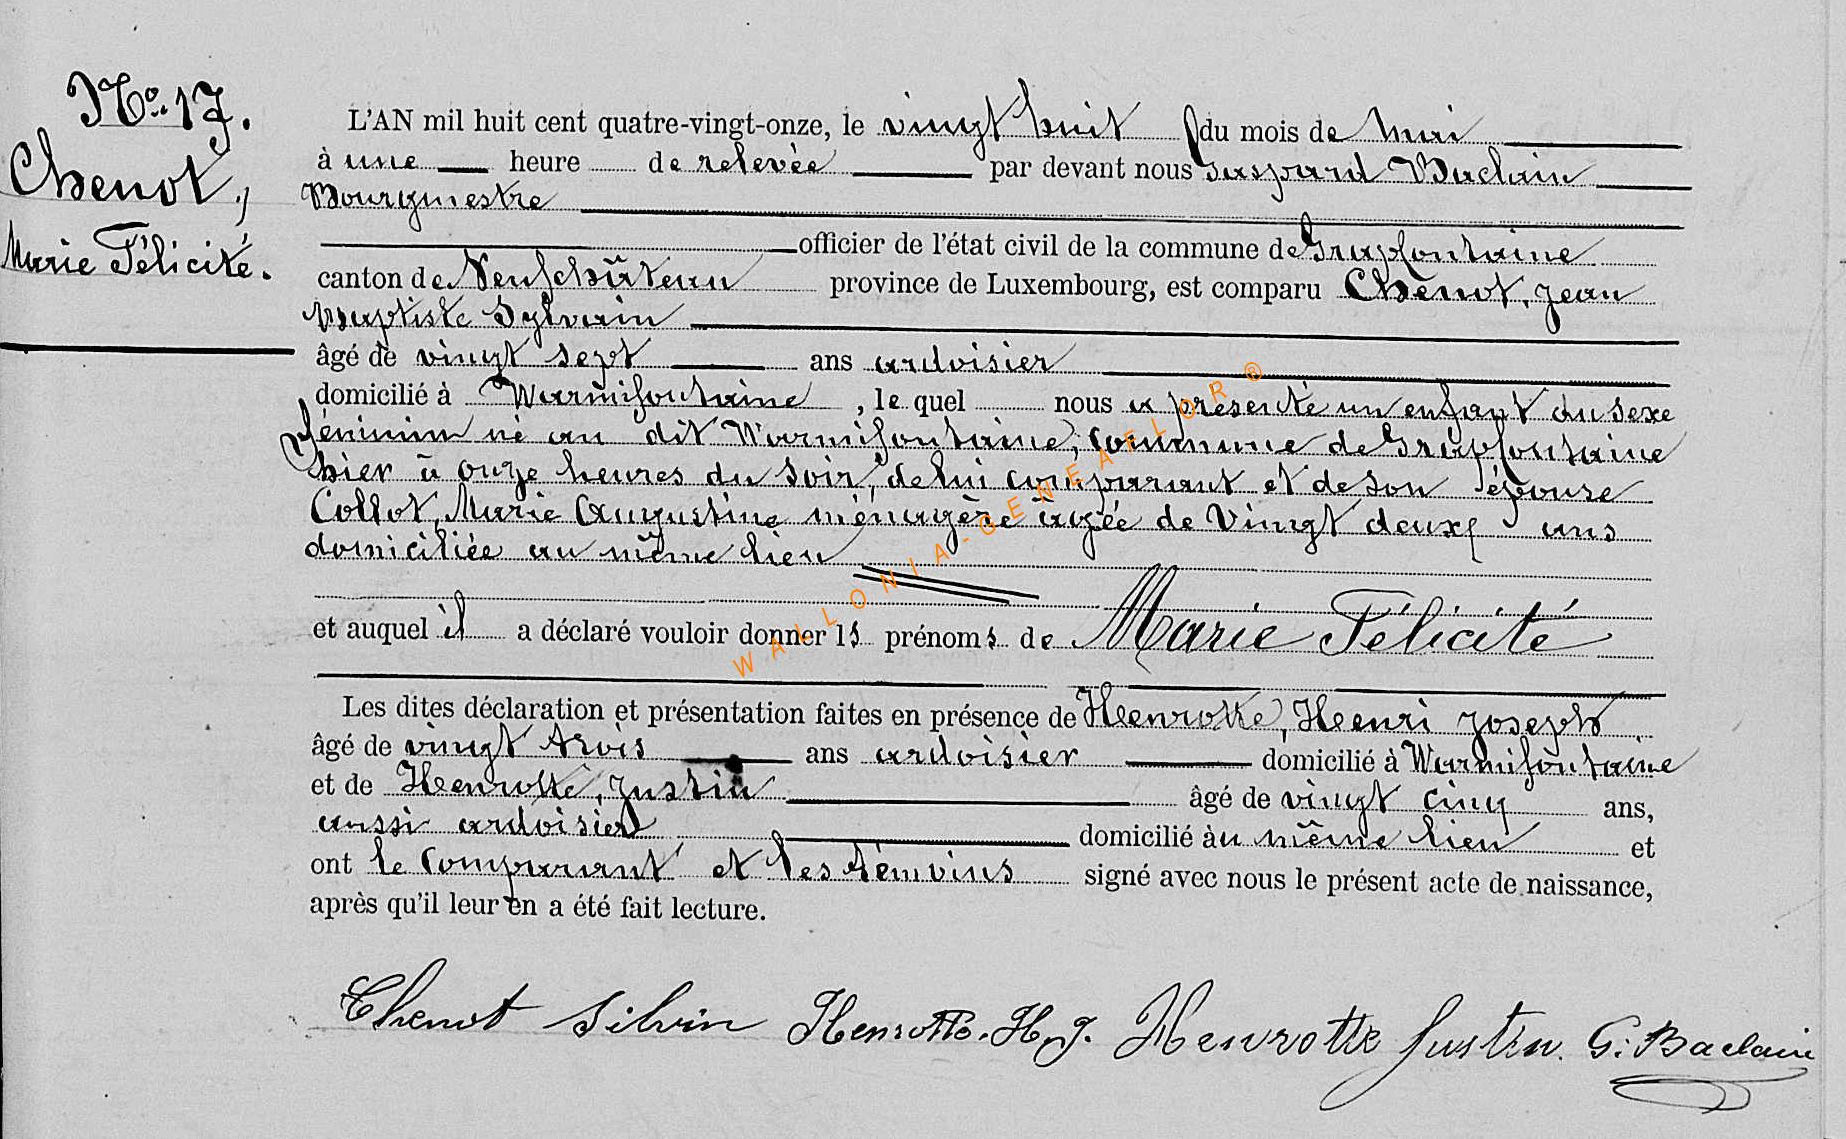 No. 17.
Chenot,
Marie Félicité.
L'AN mil huit cent quatre-vingt-onze, le vingt huit du mois de mai
à une heure de relevée par devant nous Gaspard Baclain
Bourgmestre
officier de l'état civil de la commune de Grapfontaine
canton de Neufchâteau province de Luxembourg, est comparu Chenot, Jean
Baptiste Sylvain
âgé de vingt sept ans ardoisier
domicilié à Warmifontaine, le quel nous a présenté un enfant du sexe
féminin né au dit Warmifontaine, commune de Grapfontaine
hier à onze heures du soir, de lui comparant et de son épouse
Collot, Marie Augustine ménagère âgée de vingt deux ans
domiciliée au même lieu
et auquel il a déclaré vouloir donner ls prénoms de Marie Félicité
Les dites déclaration et présentation faites en présence de Henrotte, Henri Joseph
âgé de vingt trois ans ardoisier domicilié à Warmifontaine
et de Henrotte, Justin âgé de vingt cinq ans,
aussi ardoisier domicilié àu même lieu et
ont le comparant et les témoins signé avec nous le présent acte de naissance,
après qu'il leur en a été fait lecture.
Chenot Silvin Henrotte. H. J. Henrotte Justin. G. Baclain
WALLONIA-GENEAFLOR ®